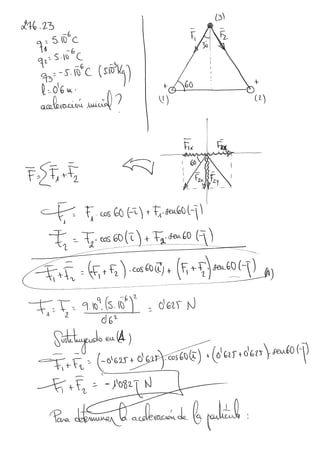 276.23
q₁ = 5.10⁻⁶ C
q₂ = 5.10⁻⁶ C
q₃ = -5.10⁻⁶ C (5.10⁻³ kg)
l = 0'6 m.
aceleración inicial?
(3)
F₁ 30 F₂
60
+ +
(1) (2)
F₁ₓ F₂ₓ
60
F₂ᵧ F₁ᵧ
F = Σ F₁ + F₂
F₁ = F₁ · cos 60 (-i) + F₁ · sen 60 (-j)
F₂ = F₂ · cos 60 (i) + F₂ · sen 60 (-j)
F₁ + F₂ = (F₁ + F₂) · cos 60 (i) + (F₁ + F₂) sen 60 (-j) (A)
F₁ = F₂ = 9.10⁹ (5.10⁻⁶)² / 0'6² = 0'625 N
Sustituyendo en (A)
F₁ + F₂ = (-0'625 + 0'625) · cos 60 (i) + (0'625 + 0'625) · sen 60 (-j)
F₁ + F₂ = -1'082 j N
Para determinar la aceleración de la partícula :